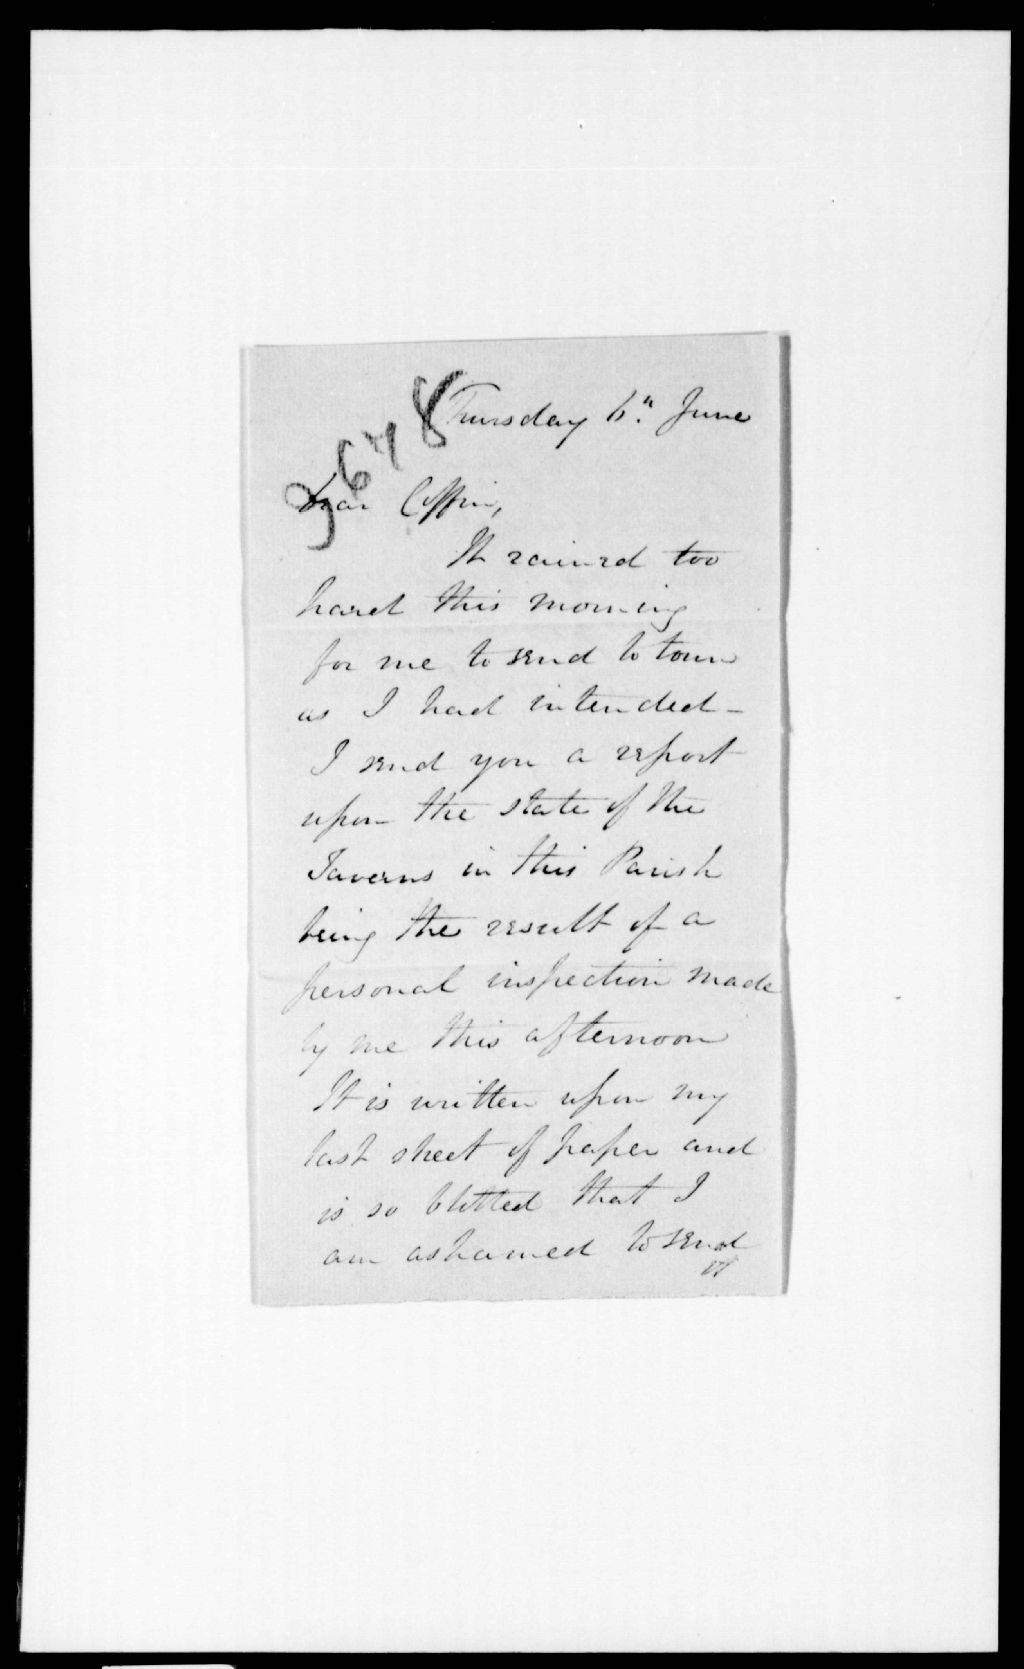 3678
Thursday 6th June
Dear Coffin,
It rained too
hard this morning
for me to send to town
as I had intended -
I send you a report
upon the state of the
Taverns in this Parish
being the result of a
personal inspection made
by me this afternoon
It is written upon my
last sheet of paper and
is so blotted that I
am ashamed to send
it